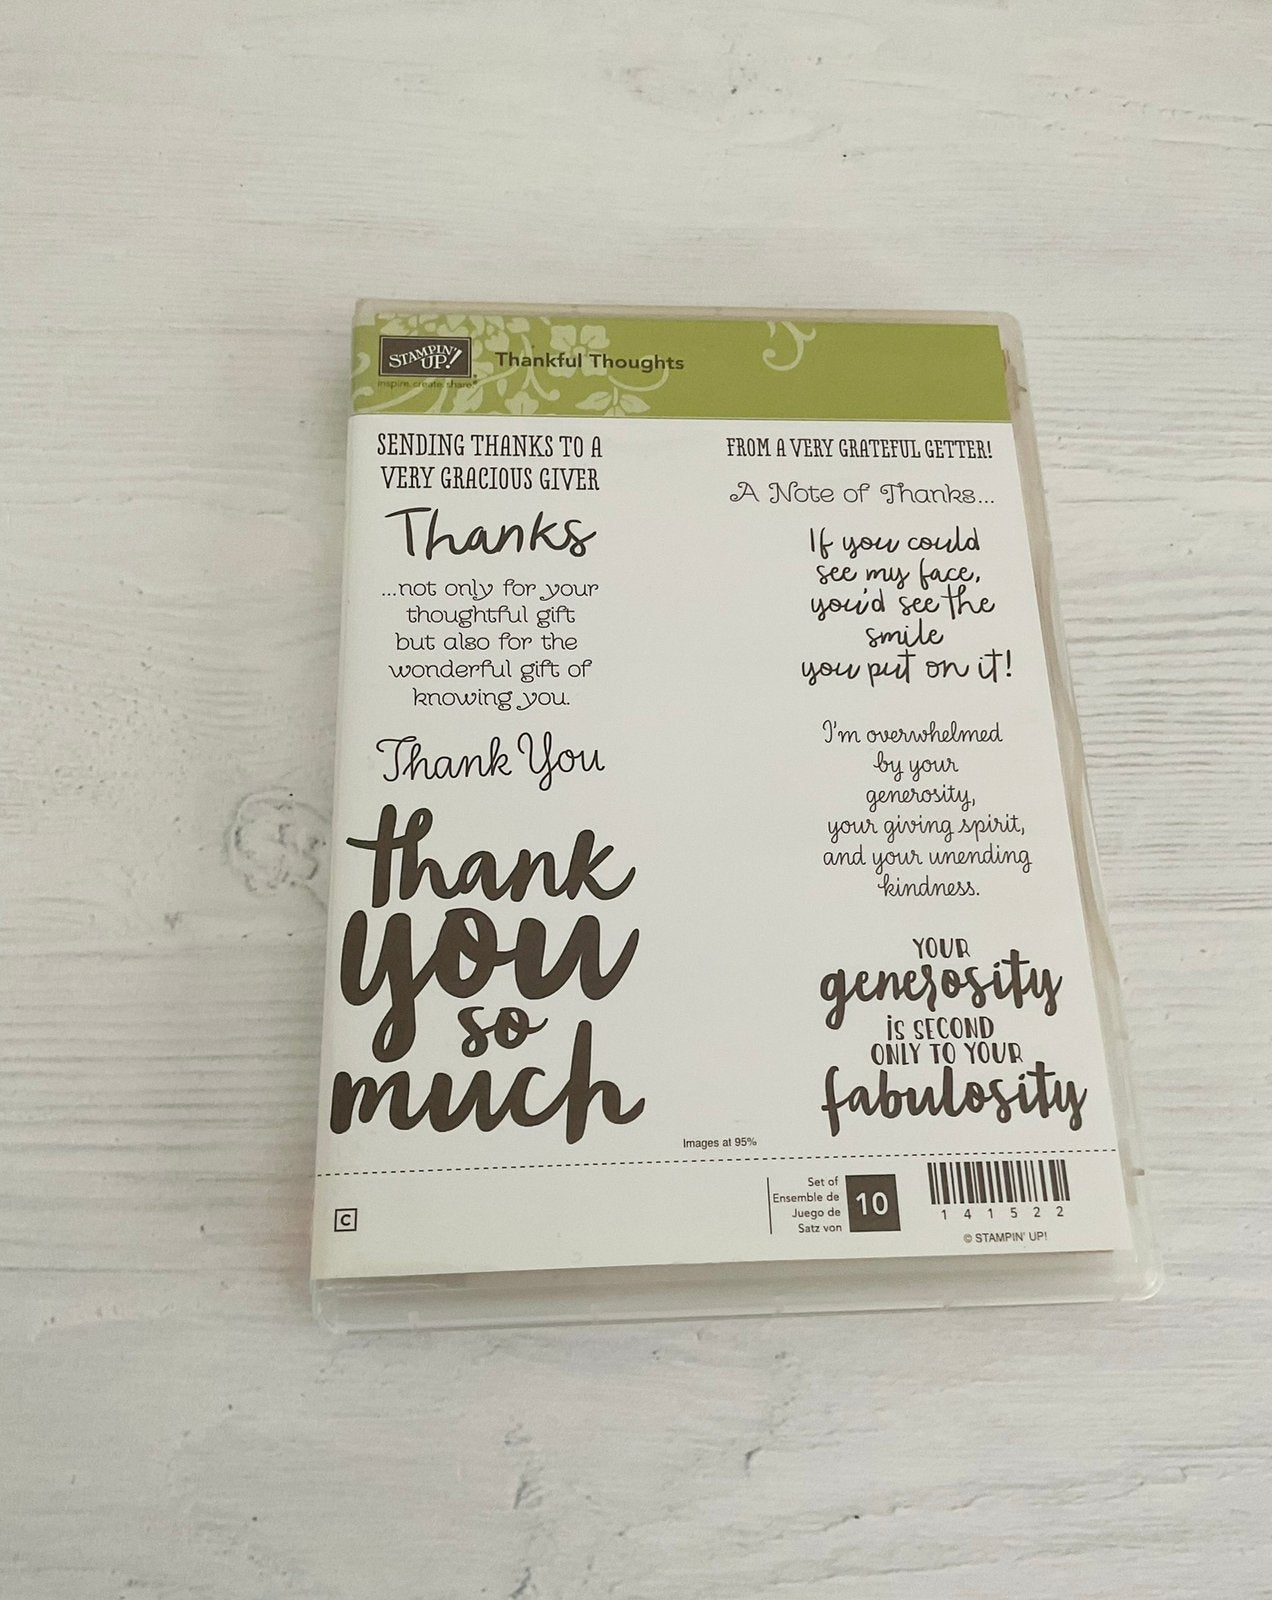 STAMPIN' UP!
inspire. create. share.®
Thankful Thoughts
SENDING THANKS TO A
VERY GRACIOUS GIVER
Thanks
...not only for your
thoughtful gift
but also for the
wonderful gift of
knowing you.
Thank You
thank
you
so
much
FROM A VERY GRATEFUL GETTER!
A Note of Thanks...
If you could
see my face,
you'd see the
smile
you put on it!
I'm overwhelmed
by your
generosity,
your giving spirit,
and your unending
kindness.
YOUR
generosity
is SECOND
ONLY TO YOUR
fabulosity
Images at 95%
C
Set of
Ensemble de
Juego de
Satz von
10
141522
© STAMPIN' UP!